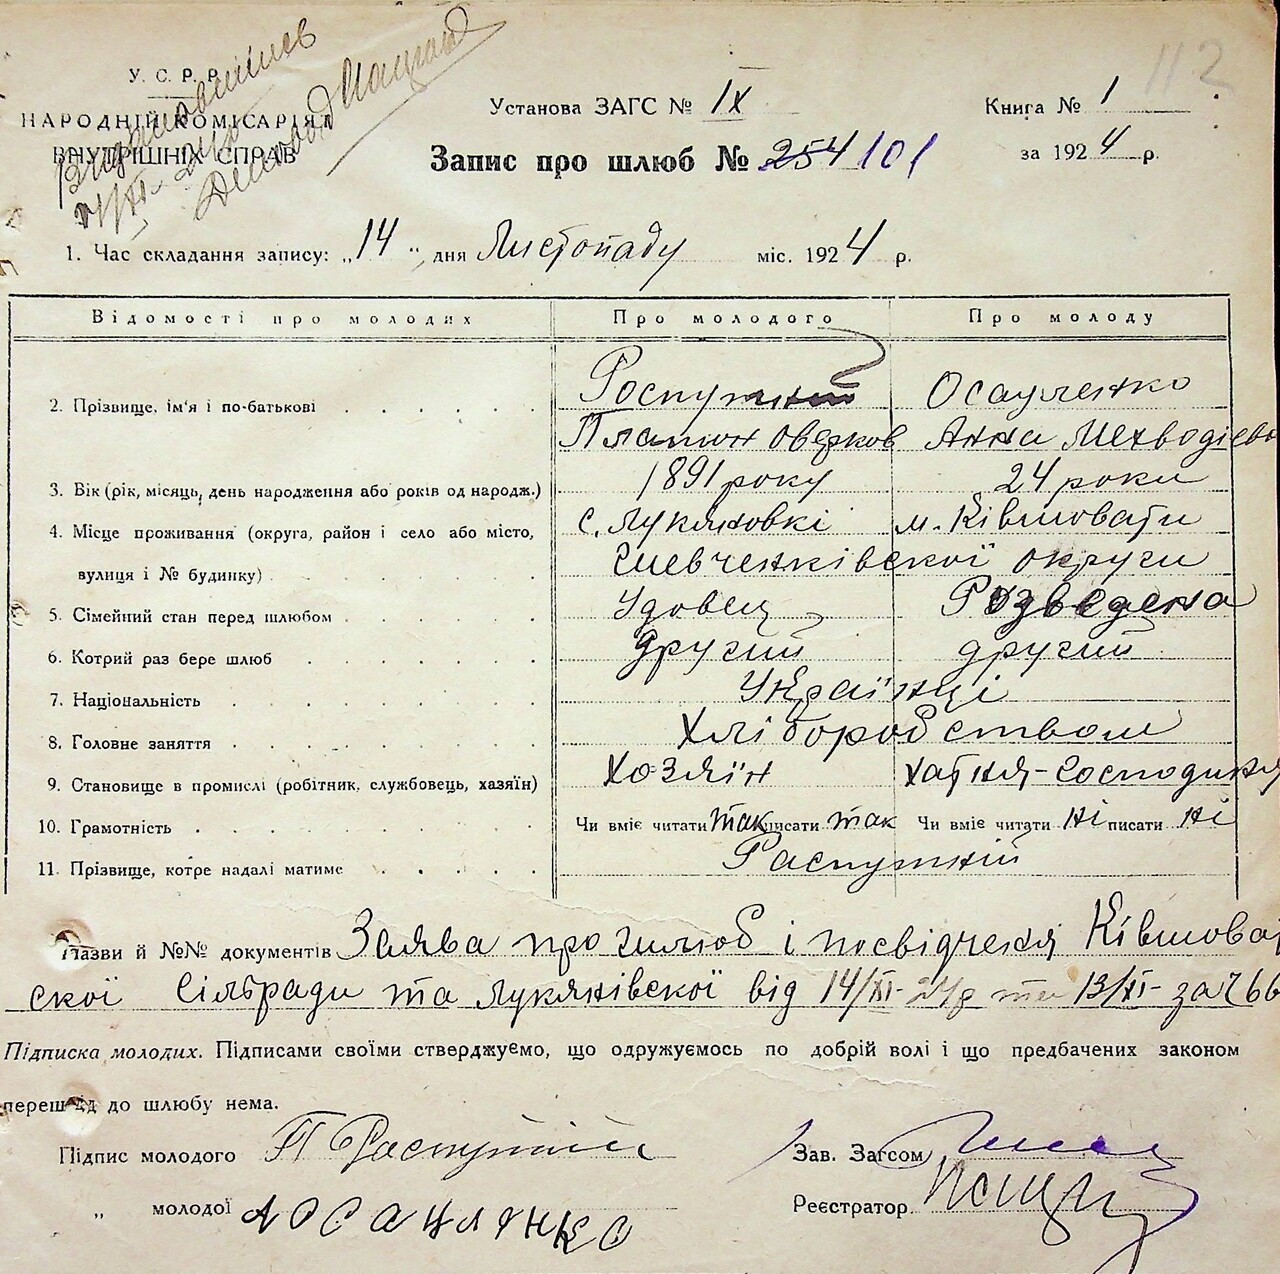 112
У. С. Р. Р.
НАРОДНІЙ КОМІСАРІЯТ
ВНУТРІШНІХ СПРАВ
Установа ЗАГС № IX
Книга № 1
Запис про шлюб № 254 101
за 1924 р.
1. Час складання запису: „14“ дня Листопаду міс. 1924 р.
Відомості про молодих Про молодого Про молоду
2. Прізвище, ім'я і по-батькові Роспутній Осауленко
Платон Оверков Анна Мехводіева
3. Вік (рік, місяць, день народження або років од народж.) 1891 року 24 роки
4. Місце проживання (округа, район і село або місто, с. Лукяновкі м. Ківшовати
вулиця і № будинку) Шевченківскої округи
5. Сімейний стан перед шлюбом Удовец Розведена
6. Котрий раз бере шлюб Другий другий
7. Національність Українці
8. Головне заняття Хліборобством
9. Становище в промислі (робітник, службовець, хазяїн) Хозяїн хатня-господиня
10. Грамотність Чи вміє читати так писати так Чи вміє читати ні писати ні
11. Прізвище, котре надалі матиме Распутній
Назви й №№ документів Заява про шлюб і посвідченя Ківшоват
скої сільради та Лукянівскої від 14/XI-24р та 13/XI- за 766
Підписка молодих. Підписами своїми стверджуємо, що одружуємось по добрій волі і що предбачених законом
перешкод до шлюбу нема.
Підпис молодого П Распутній
Зав. Загсом
„ молодої А Осауленко
Реєстратор